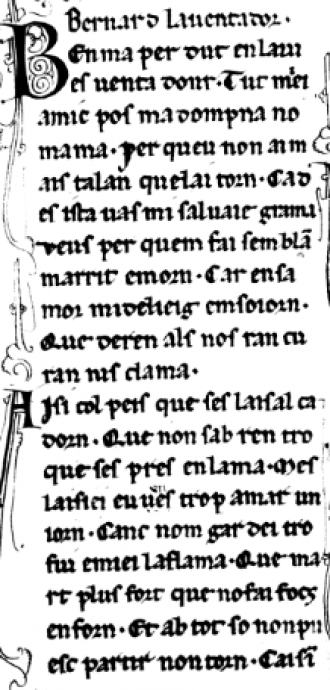 Bernard Liventador.
Ben ma perdut en lau
es uenta dont. Tut mei
amic pos ma dompna no
mama. Per queu non aim
ais talan que lai torn. Cad
es ista uas mi saluaie gram
reus per quem fai semblã
marrit e morn. Car en sa
mor mi deleig em soiorn.
Que deren als nos ran cu
ran nis clama.
Aisi col peis que ses laisal ca
dorn. Que non sab ren tro
que ses pres en lama. Mes
laisici eu ues trop amar un
iorn. Canc nom gardei tro
fui enmei la flama. Que ma
rt plus fort que no fai focs
en forn. Et ab tot so non pu
esc partir non torn. Caisi